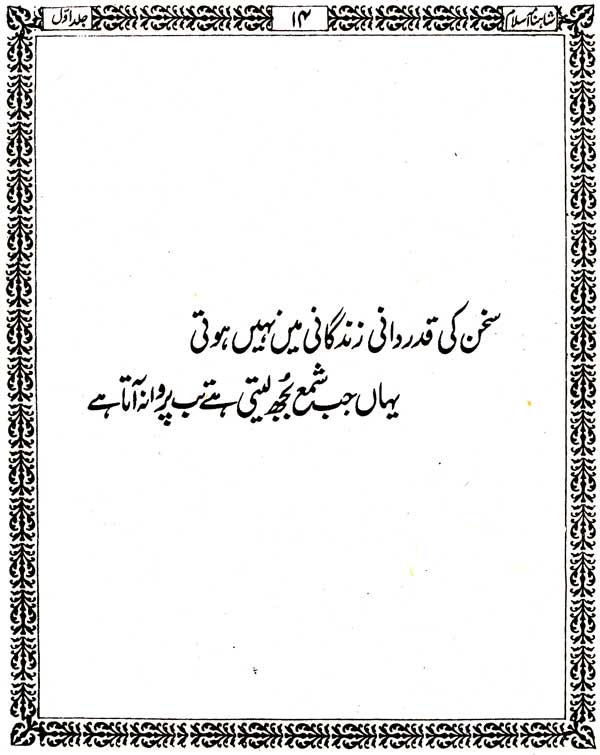 شاہنامۂ اسلام
۱۴
جلد اوّل
سخن کی قدر دانی زندگانی میں نہیں ہوتی
یہاں جب شمع بُجھ لیتی ہے تب پروانہ آتا ہے